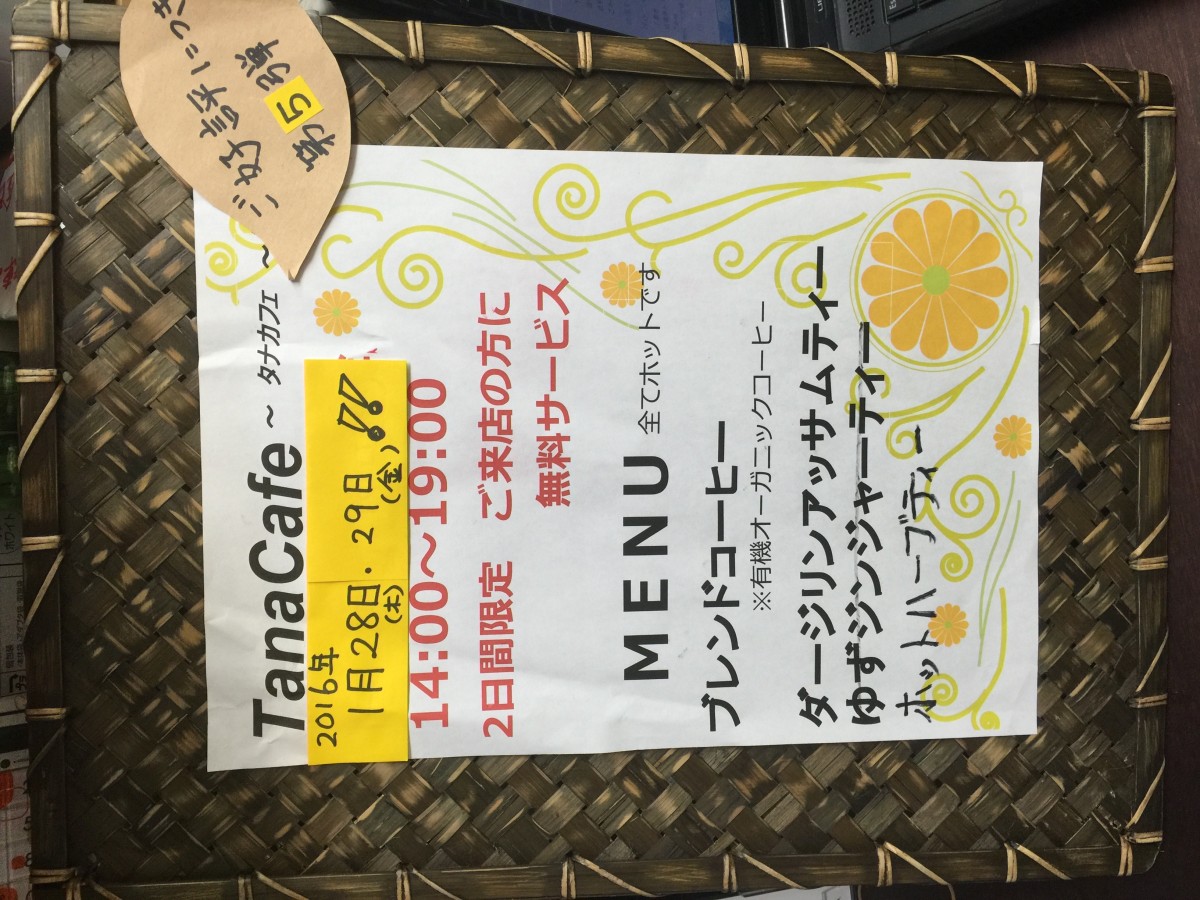 ご好評につき
第5弾
TanaCafe ~ タナカフェ ~
2016年
1月28日・29日!!
(木) (金)
14:00~19:00
2日間限定 ご来店の方に
無料サービス
MENU 全てホットです
ブレンドコーヒー
※有機オーガニックコーヒー
ダージリンアッサムティー
ゆずジンジャーティー
ホットハーブティー